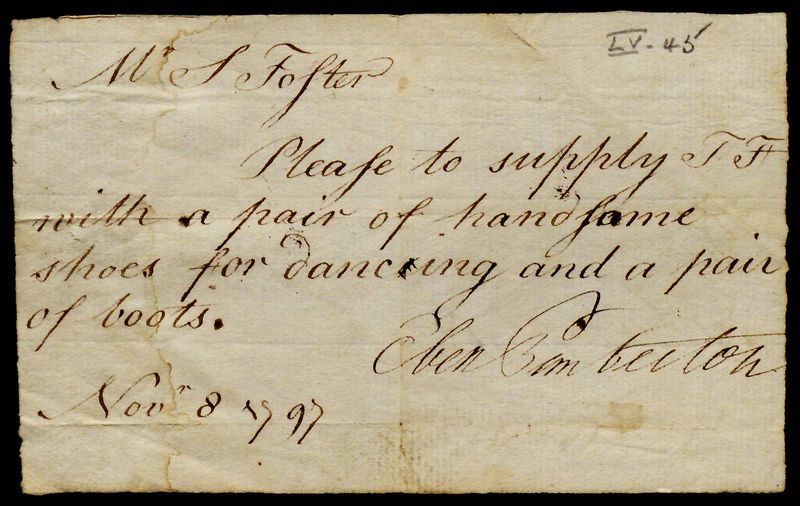 LV-45
Mr S Foster
Please to supply T F
with a pair of handsome
shoes for dancing and a pair
of boots.
Eben Pemberton
Novr 8 1797